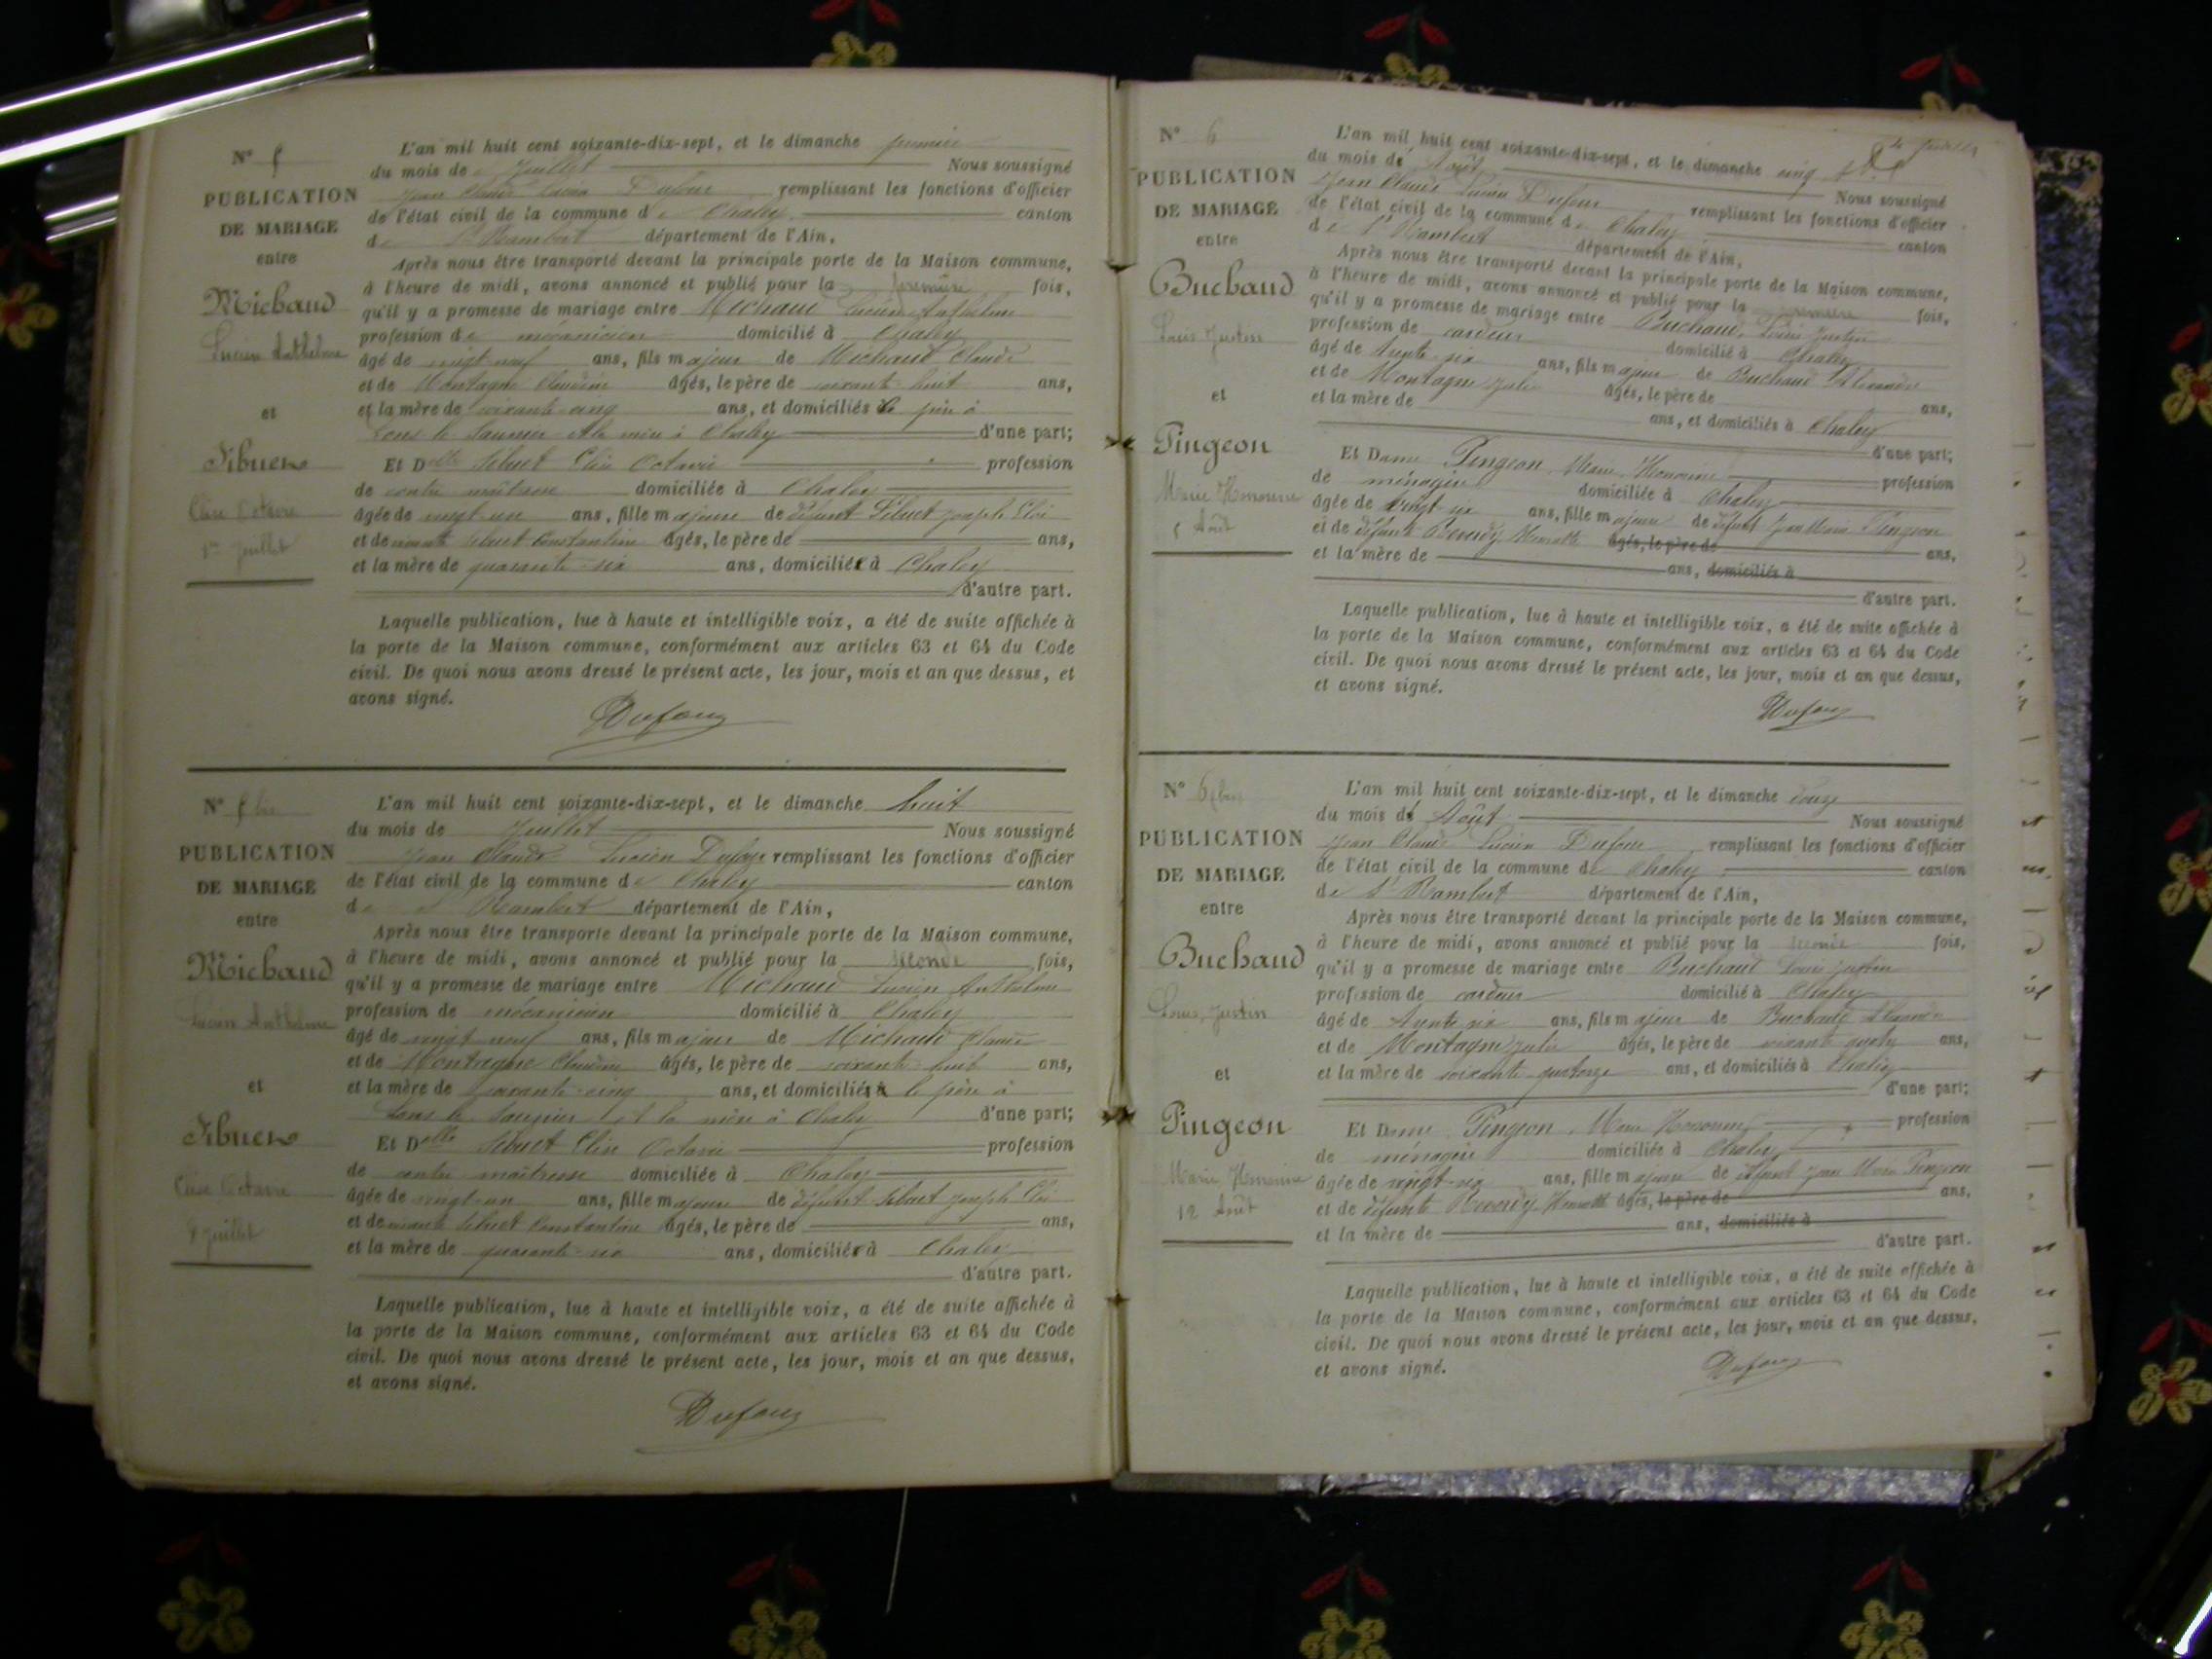 N° 5
PUBLICATION
DE MARIAGE
entre
Michaud
Lucien Anthelme
et
Sibuet
Elise Octavie
1er Juillet
L'an mil huit cent soixante-dix-sept, et le dimanche premier
du mois de Juillet Nous soussigné
Jean Claude Lucien Dufour remplissant les fonctions d'officier
de l'état civil de la commune de Chaley canton
de St Rambert département de l'Ain,
Après nous être transporté devant la principale porte de la Maison commune,
à l'heure de midi, avons annoncé et publié pour la première fois,
qu'il y a promesse de mariage entre Michaud Lucien Anthelme
profession de mécanicien domicilié à Chaley
âgé de vingt-neuf ans, fils majeur de Michaud Claude
et de Montagne Claudine âgés, le père de soixante-huit ans,
et la mère de soixante-cinq ans, et domiciliés le père à
Lons le Saunier et la mère à Chaley d'une part;
Et Delle Sibuet Elise Octavie profession
de contre maîtresse domiciliée à Chaley
âgée de vingt-un ans, fille majeure de défunt Sibuet Joseph Eloi
et de vivante Sibuet Constantine âgés, le père de ans,
et la mère de quarante-six ans, domiciliée à Chaley
d'autre part.
Laquelle publication, lue à haute et intelligible voix, a été de suite affichée à
la porte de la Maison commune, conformément aux articles 63 et 64 du Code
civil. De quoi nous avons dressé le présent acte, les jour, mois et an que dessus, et
avons signé.
Dufour
N° 5 bis
PUBLICATION
DE MARIAGE
entre
Michaud
Lucien Anthelme
et
Sibuet
Elise Octavie
8 Juillet
L'an mil huit cent soixante-dix-sept, et le dimanche huit
du mois de Juillet Nous soussigné
Jean Claude Lucien Dufour remplissant les fonctions d'officier
de l'état civil de la commune de Chaley canton
de St Rambert département de l'Ain,
Après nous être transporté devant la principale porte de la Maison commune,
à l'heure de midi, avons annoncé et publié pour la seconde fois,
qu'il y a promesse de mariage entre Michaud Lucien Anthelme
profession de mécanicien domicilié à Chaley
âgé de vingt neuf ans, fils majeur de Michaud Claude
et de Montagne Claudine âgés, le père de soixante-huit ans,
et la mère de soixante-cinq ans, et domiciliés le père à
Lons le Saunier et la mère à Chaley d'une part;
Et Delle Sibuet Elise Octavie profession
de contre maîtresse domiciliée à Chaley
âgée de vingt-un ans, fille majeure de défunt Sibuet Joseph Eloi
et de vivante Sibuet Constantine âgés, le père de ans,
et la mère de quarante-six ans, domiciliée à Chaley
d'autre part.
Laquelle publication, lue à haute et intelligible voix, a été de suite affichée à
la porte de la Maison commune, conformément aux articles 63 et 64 du Code
civil. De quoi nous avons dressé le présent acte, les jour, mois et an que dessus,
et avons signé.
Dufour
N° 6
PUBLICATION
DE MARIAGE
entre
Buchaud
Louis Justin
et
Pingeon
Marie Honorine
5 Août
L'an mil huit cent soixante-dix-sept, et le dimanche cinq
du mois de Août Nous soussigné
Jean Claude Lucien Dufour remplissant les fonctions d'officier
de l'état civil de la commune de Chaley canton
de St Rambert département de l'Ain,
Après nous être transporté devant la principale porte de la Maison commune,
à l'heure de midi, avons annoncé et publié pour la première fois,
qu'il y a promesse de mariage entre Buchaud, Louis Justin
profession de cardeur domicilié à Chaley
âgé de trente-six ans, fils majeur de Buchaud Alexandre
et de Montagne Julie âgés, le père de ans,
et la mère de ans, et domiciliés à Chaley
d'une part;
Et Dame Pingeon, Marie Honorine profession
de ménagère domiciliée à Chaley
âgée de vingt-six ans, fille majeure de défunt Jean Marie Pingeon
et de défunte Henriette âgés, le père de ans,
et la mère de ans, domiciliés à
d'autre part.
Laquelle publication, lue à haute et intelligible voix, a été de suite affichée à
la porte de la Maison commune, conformément aux articles 63 et 64 du Code
civil. De quoi nous avons dressé le présent acte, les jour, mois et an que dessus,
et avons signé.
Dufour
N° 6 bis
PUBLICATION
DE MARIAGE
entre
Buchaud
Louis, Justin
et
Pingeon
Marie Honorine
12 Août
L'an mil huit cent soixante-dix-sept, et le dimanche douze
du mois de Août Nous soussigné
Jean Claude Lucien Dufour remplissant les fonctions d'officier
de l'état civil de la commune de Chaley canton
de St Rambert département de l'Ain,
Après nous être transporté devant la principale porte de la Maison commune,
à l'heure de midi, avons annoncé et publié pour la seconde fois,
qu'il y a promesse de mariage entre Buchaud Louis Justin
profession de cardeur domicilié à Chaley
âgé de trente six ans, fils majeur de Buchaud Alexandre
et de Montagne Julie âgés, le père de soixante ans,
et la mère de soixante quatorze ans, et domiciliés à Chaley
d'une part;
Et Dame Pingeon, Marie Honorine profession
de ménagère domiciliée à Chaley
âgée de vingt-six ans, fille majeure de défunt Jean Marie Pingeon
et de défunte Henriette âgés, le père de ans,
et la mère de ans, domiciliés à
d'autre part.
Laquelle publication, lue à haute et intelligible voix, a été de suite affichée à
la porte de la Maison commune, conformément aux articles 63 et 64 du Code
civil. De quoi nous avons dressé le présent acte, les jour, mois et an que dessus,
et avons signé.
Dufour